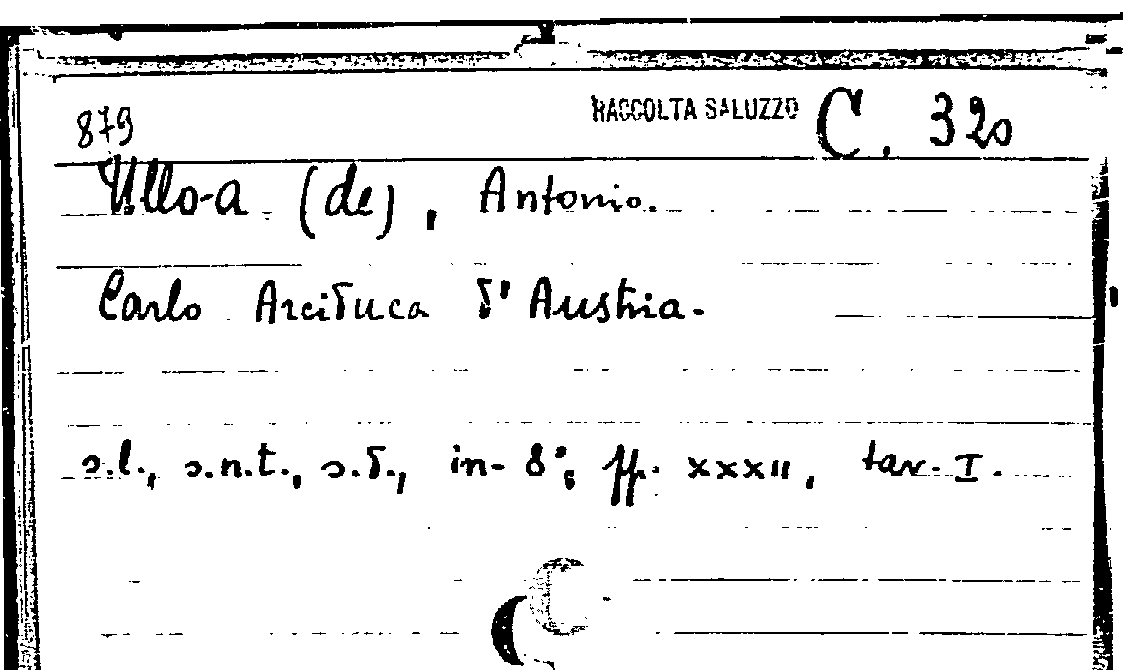 879 RACCOLTA SALUZZO C. 320
Ulloa (de), Antonio.
Carlo Arciduca d'Austria.
s.l., s.n.t., s.d., in-8°, ff. XXXII, tav. I.